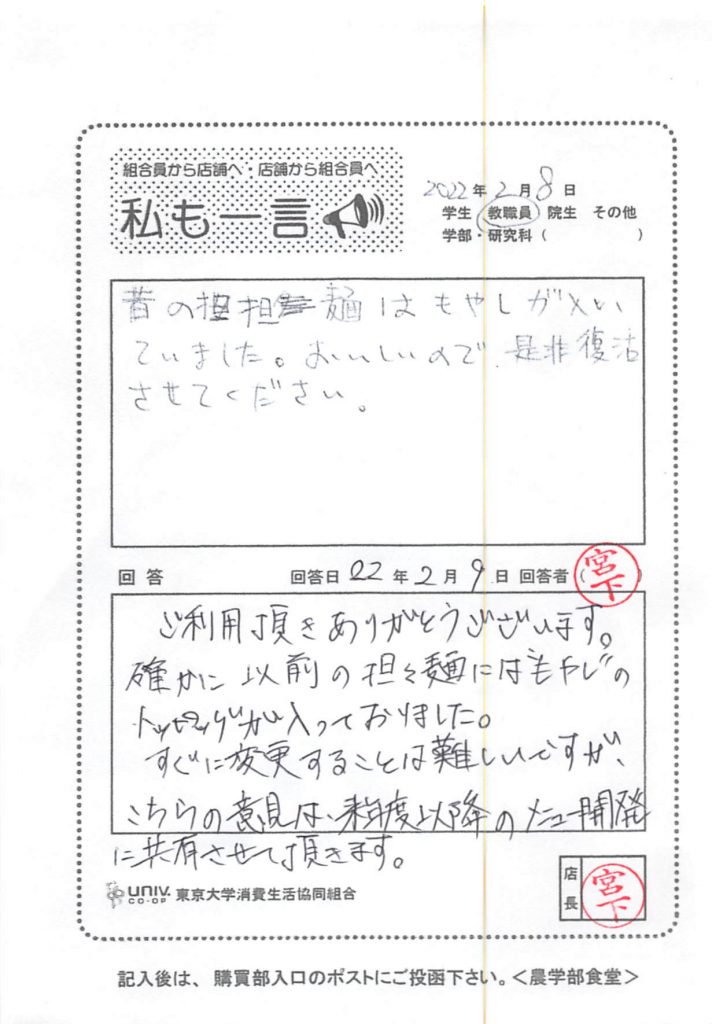 組合員から店舗へ・店舗から組合員へ
私も一言
2022年2月8日
学生 教職員 院生 その他
学部・研究科（　　　）
昔の担担麺はもやしが入い
ていました。おいしいので、是非復活
させてください。
回答 回答日 22年2月9日 回答者（宮下）
ご利用頂きありがとうございます。
確かに以前の担々麺には"もやし"の
トッピングが入っておりました。
すぐに変更することは難しいですが、
こちらの意見は、来年度以降のメニュー開発
に共有させて頂きます。
UNIV. CO-OP 東京大学消費生活協同組合
店長 宮下
記入後は、購買部入口のポストにご投函下さい。＜農学部食堂＞